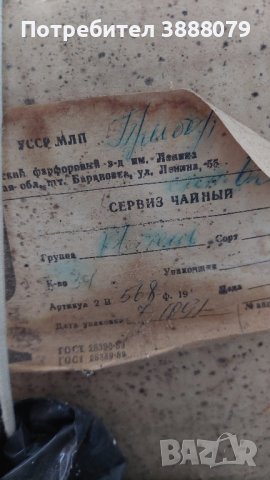 Продава: 3888079
УССР МЛП Прибор
ский фарфоровый з-д им. Ленина
ая обл., пгт. Барановка, ул. Ленина, 35
СЕРВИЗ ЧАЙНЫЙ
Группа
Сорт
К-во
Упаковщик
Артикул 2 И 568 ф. 19
Цена
Дата упаковки
ГОСТ 28390-89
ГОСТ 28389-89
BAZAR
bg